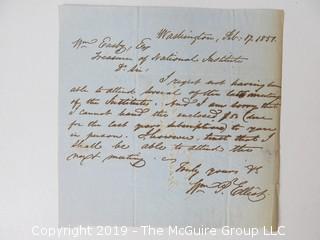 Washington, Feb. 17. 1857.
Wm Easby, Esq
Treasurer of National Institute
Dr Sir.
I regret not having been
able to attend several of the last meetings
of the Institute. And I am sorry that
I cannot hand the enclosed $5 (due
for the last years subscription) to you
in person. I however trust that I
shall be able to attend the
next meeting.
Truly yours &c
Wm P. Elliot
Copyright 2019 - The McGuire Group LLC